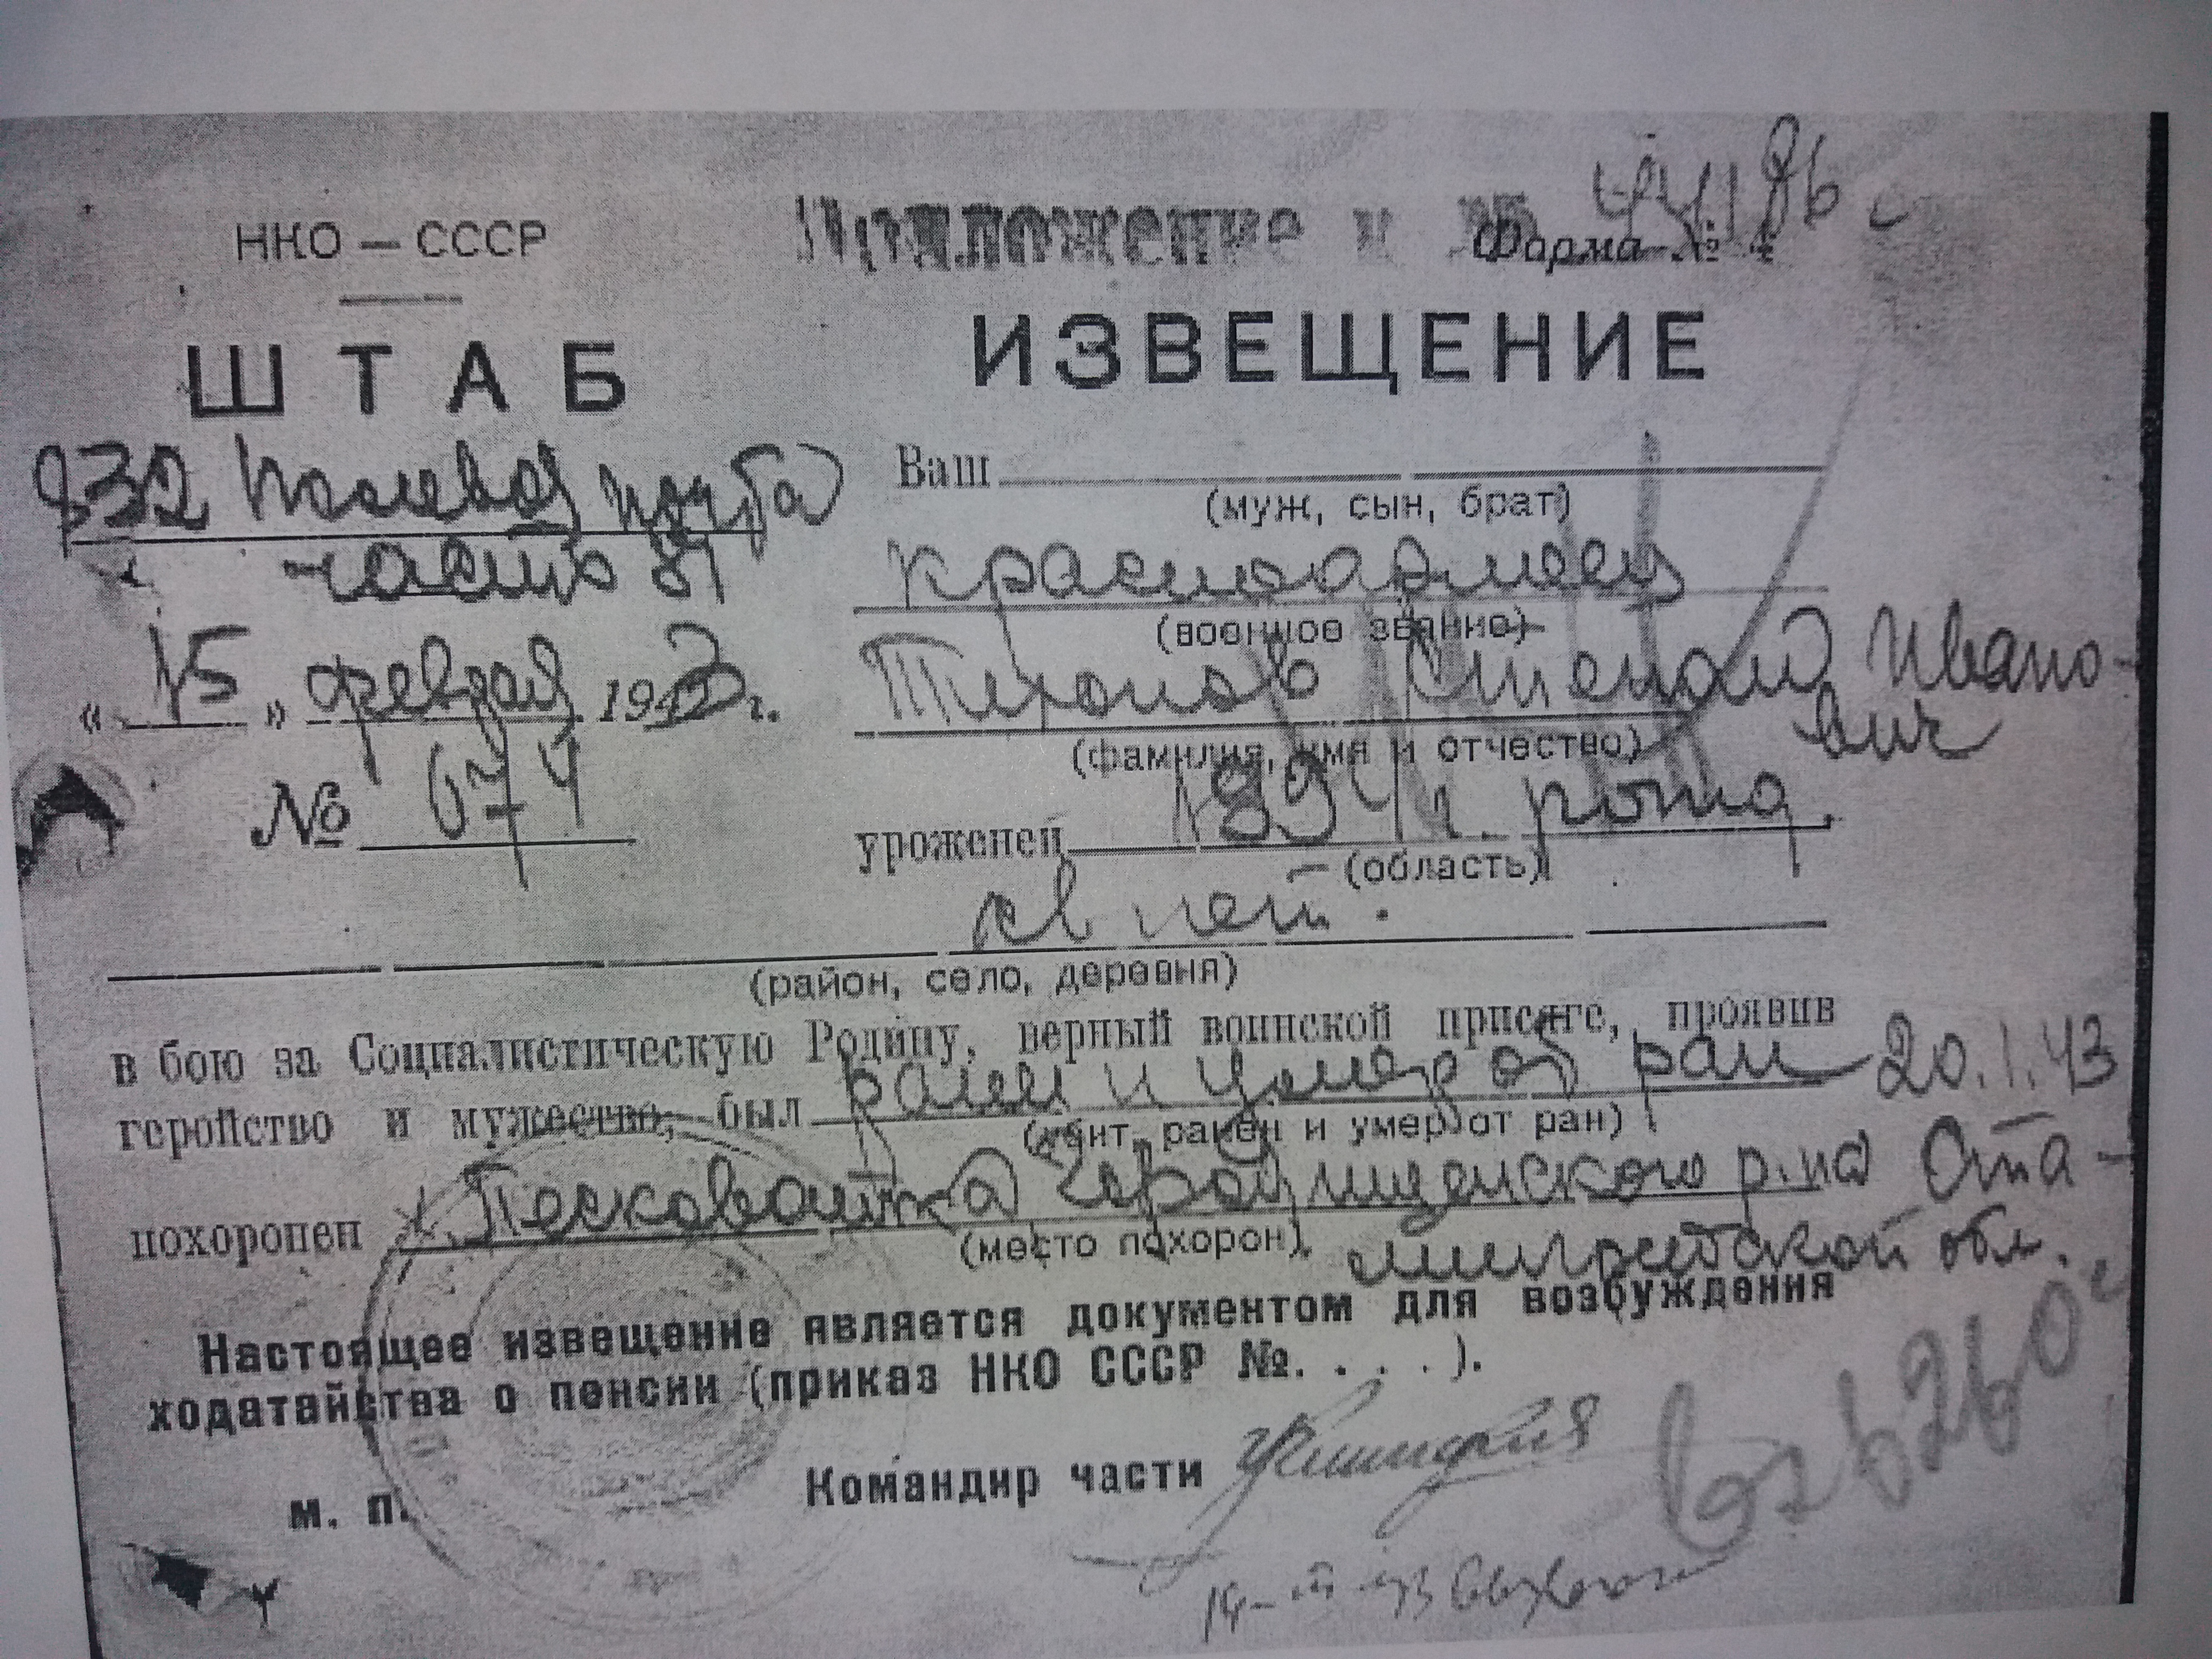 НКО — СССР
Приложение к №
Форма № 4
ШТАБ
832 полевая почта
часть 81
« 15 » февраля 1943 г.
№ 674
ИЗВЕЩЕНИЕ
Ваш
(муж, сын, брат)
красноармеец
(военное звание)
Тихонов Степан Ивано-
вич
(фамилия, имя и отчество)
уроженец 1894 г. рожд.
(область)
св нет.
(район, село, деревня)
в бою за Социалистическую Родину, верный воинской присяге, проявив
геройство и мужество, был ранен и умер от ран 20.1.43
(убит, ранен и умер от ран)
похоронен х. Песковатка Городищенского р-на Ста-
(место похорон)
линградской обл.
Настоящее извещение является документом для возбуждения
ходатайства о пенсии (приказ НКО СССР №. . . .).
м. п.
Командир части